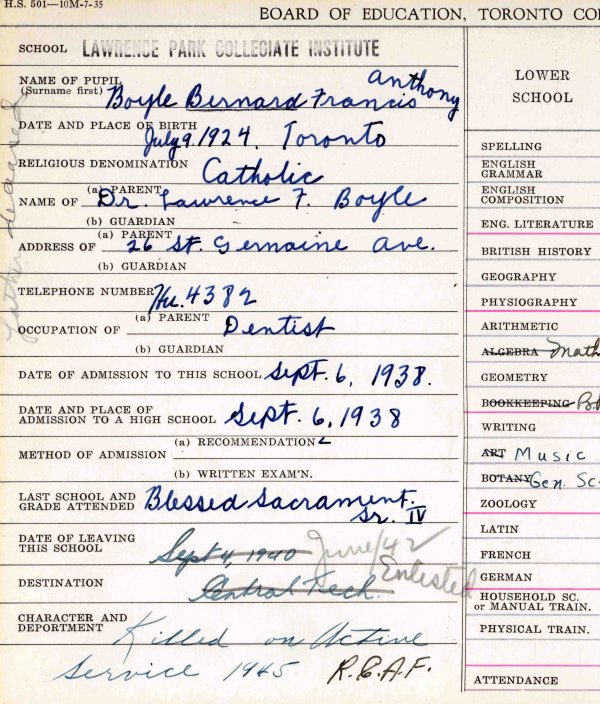 H.S. 501—10M-7-35
BOARD OF EDUCATION, TORONTO CO
SCHOOL LAWRENCE PARK COLLEGIATE INSTITUTE
NAME OF PUPIL
(Surname first) Boyle Bernard Francis Anthony
DATE AND PLACE OF BIRTH July 9. 1924. Toronto
RELIGIOUS DENOMINATION Catholic
(a) PARENT
NAME OF Dr. Lawrence F. Boyle
(b) GUARDIAN
(a) PARENT
ADDRESS OF 26 St. Germaine Ave.
(b) GUARDIAN
Father deceased
TELEPHONE NUMBER Hu. 4382
(a) PARENT
OCCUPATION OF Dentist
(b) GUARDIAN
DATE OF ADMISSION TO THIS SCHOOL Sept. 6, 1938.
DATE AND PLACE OF
ADMISSION TO A HIGH SCHOOL Sept. 6, 1938
(a) RECOMMENDATION
METHOD OF ADMISSION
(b) WRITTEN EXAM'N.
LAST SCHOOL AND
GRADE ATTENDED Blessed Sacrament.
Sr. IV
DATE OF LEAVING
THIS SCHOOL Sept 4, 1940 June/42
DESTINATION Central Tech. Enlisted
CHARACTER AND
DEPORTMENT Killed on Active
Service 1945 R.C.A.F.
LOWER
SCHOOL
SPELLING
ENGLISH
GRAMMAR
ENGLISH
COMPOSITION
ENG. LITERATURE
BRITISH HISTORY
GEOGRAPHY
PHYSIOGRAPHY
ARITHMETIC
ALGEBRA Math
GEOMETRY
BOOKKEEPING B.P
WRITING
ART Music
BOTANY Gen. Sc
ZOOLOGY
LATIN
FRENCH
GERMAN
HOUSEHOLD SC.
or MANUAL TRAIN.
PHYSICAL TRAIN.
ATTENDANCE